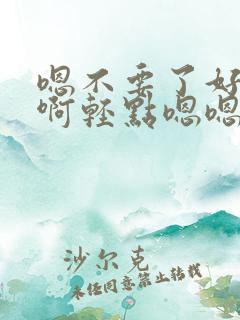 嗯不要了好
啊轻點嗯嗯
沙尔克
未任同意禁止转载